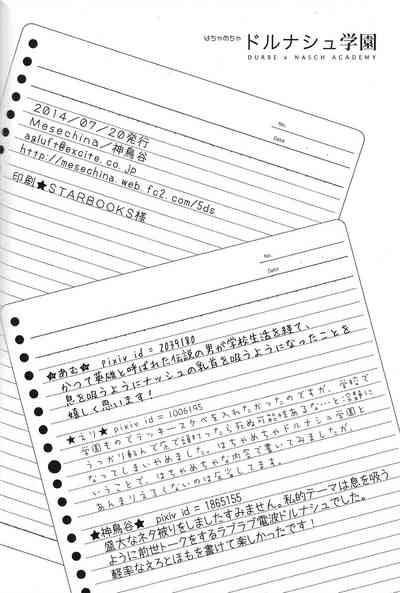 はちゃめちゃ ドルナシュ学園
DURBE × NASCH ACADEMY
No.
Date
2014/07/20発行
Mesechina/神鳥谷
agluft@excite.co.jp
http://mesechina.web.fc2.com/5ds
印刷★STARBOOKS様
No.
Date
★あむ★ pixiv id = 2039180
かつて英雄と呼ばれた伝説の男が学校生活を経て、
息を吸うようにナッシュの乳首を吸うようになったことを
嬉しく思います!
★エリ★ pixiv id = 1006155
学園ものでラッキースケベを入れたかったのですが、学校で
うっかり転んで余所で頭打ったら死ぬ可能性あるな…と冷静に
なってしまいやめました。はちゃめちゃドルナシュ学園と
いうことで、はちゃめちゃな内容で書いてみましたが、
あんまりえろくないのは反省してます。
★神鳥谷★ pixiv id = 1865155
盛大なネタ被りをしましたすみません。私的テーマは息を吸う
ように前世トークをするラブラブ電波ドルナシュでした。
軽率なえろとほもを書けて楽しかったです!